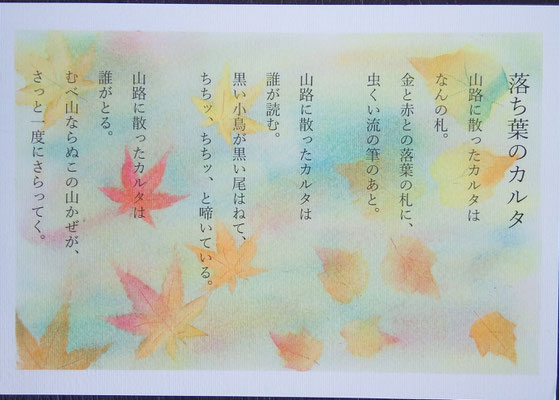 落ち葉のカルタ
山路に散ったカルタは
なんの札。
金と赤との落葉の札に、
虫くい流の筆のあと。
山路に散ったカルタは
誰が読む。
黒い小鳥が黒い尾はねて、
ちちッ、ちちッ、と啼いている。
山路に散ったカルタは
誰がとる。
むべ山ならぬこの山かぜが、
さっと一度にさらってく。